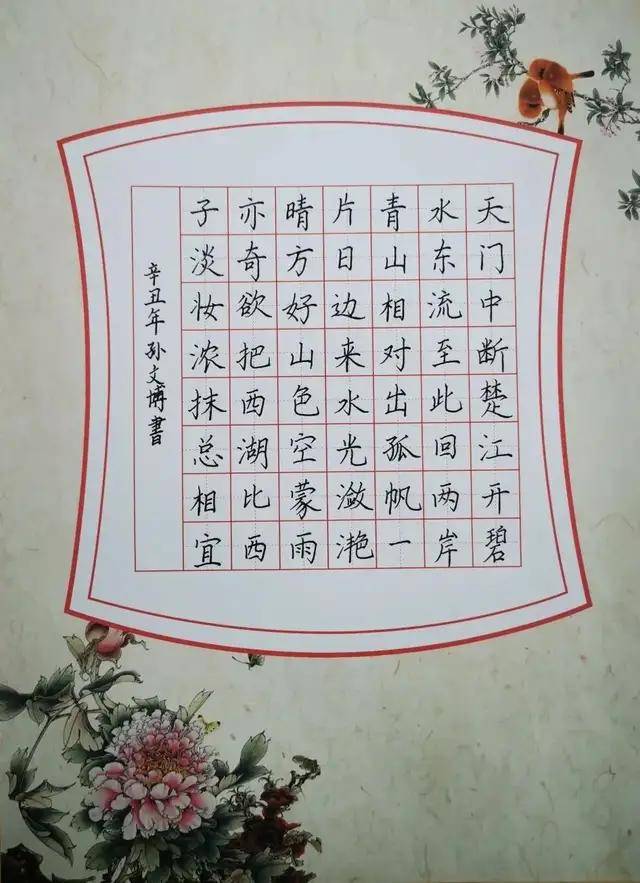 天门中断楚江开碧
水东流至此回两岸
青山相对出孤帆一
片日边来水光潋滟
晴方好山色空蒙雨
亦奇欲把西湖比西
子淡妆浓抹总相宜
辛丑年孙文博書